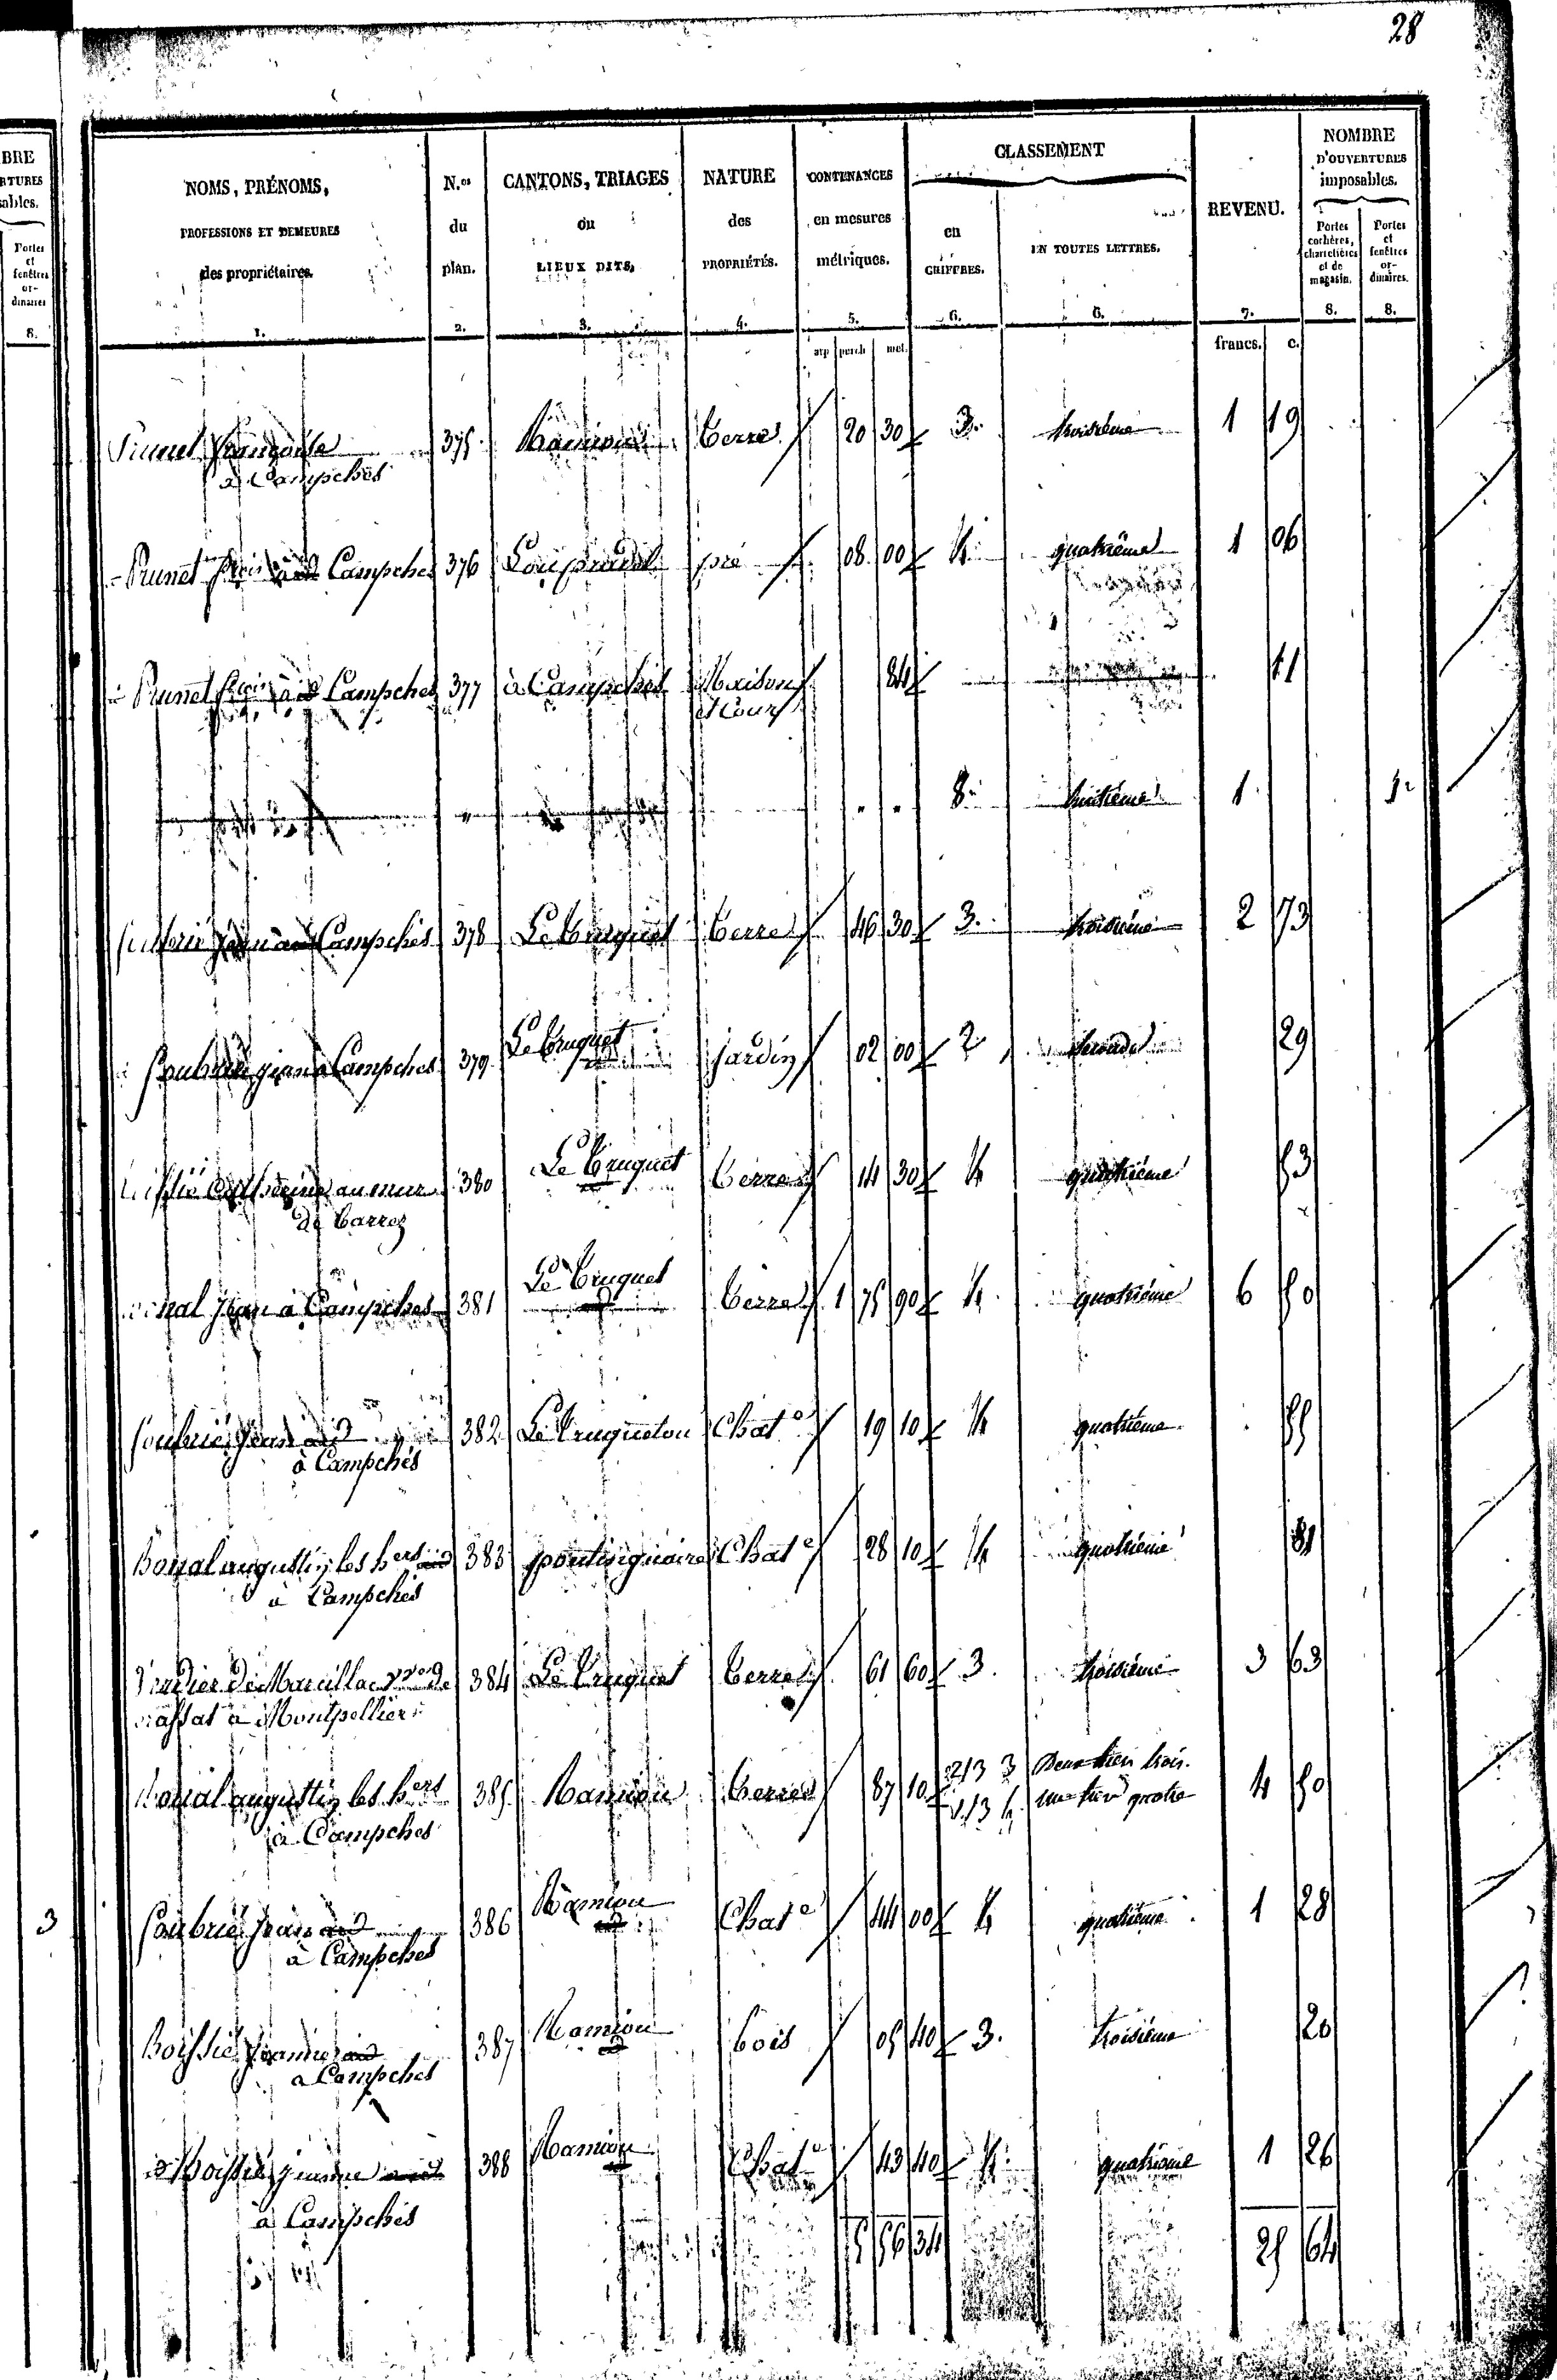 28
BRE
RTURES
sables.
Portes
et
fenêtres
or-
dinaires
8.
3
NOMS, PRÉNOMS,
PROFESSIONS ET DEMEURES
des propriétaires.
1.
N.os
du
plan.
2.
CANTONS, TRIAGES
ou
LIEUX DITS,
3.
NATURE
des
PROPRIÉTÉS.
4.
CONTENANCES
en mesures
métriques.
5.
arp perch met.
CLASSEMENT
en
CHIFFRES.
6.
EN TOUTES LETTRES.
6.
REVENU.
7.
francs. c.
NOMBRE
D'OUVERTURES
imposables.
Portes
cochères,
charretières
et de
magasin.
8.
Portes
et
fenêtres
or-
dinaires.
8.
Prunet françoise 375 Ramiou Terre 20 30 3. troisième 1 19
à Campches
Prunet Campches 376 pré 08 00 4 quatrième 1 06
Prunet Campches 377 à Campches Maison 84 11
et Cour
8. huitième 1 1
Soubrié Jean à Campches 378 Le Truquet Terre 46 30 3. troisième 2 73
Soubrié jean à Campches 379 Le Truquet jardin 02 00 2 seconde 29
au mur 380 Le Truquet Terre 14 30 4 quatrième 53
de Barrez
Jean à Campches 381 Le Truquet Terre 1 75 90 4 quatrième 6 50
Soubrié Jean 382 Le Truquetou Chat.e 19 10 4 quatrième 55
à Campches
Bonal augustin les hers 383 Chat.e 28 10 4 quatrième 81
à Campches
de Marcillac 384 Le Truquet Terre 61 60 3. troisième 3 63
à Montpellier
Bonal augustin les hers 385 Ramiou Terre 87 10 2/3 3 Deux tiers trois. 4 50
1/3 4 un tiers quatre
à Campches
Soubrié Jean 386 Ramiou Chat.e 44 00 4 quatrième 1 28
à Campches
Boissié 387 Ramiou bois 05 40 3. troisième 20
à Campches
Boissié 388 Ramiou Chat.e 43 40 4 quatrième 1 26
à Campches
5 56 34 25 64